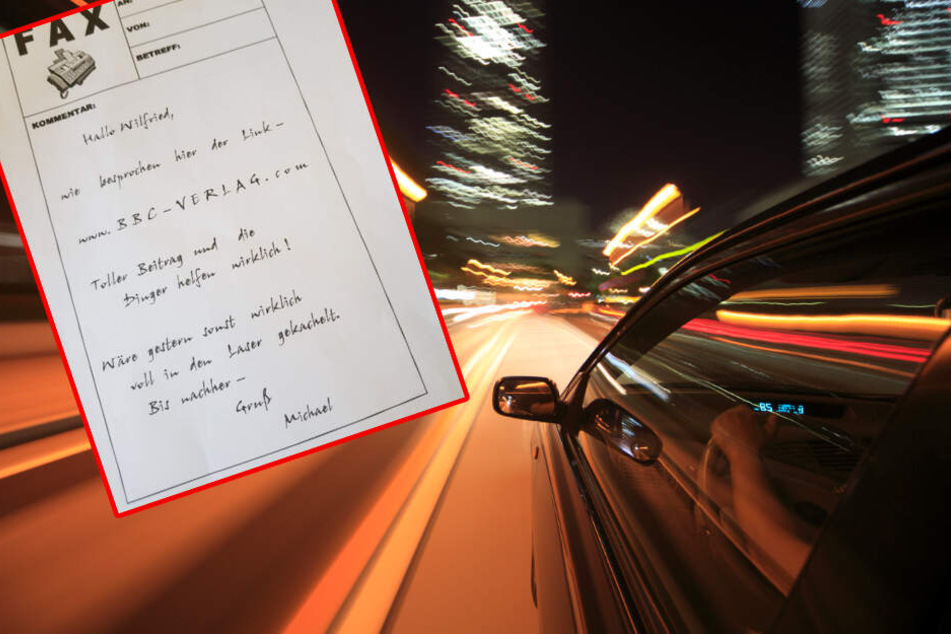 FAX
AN:
VON:
BETREFF:
KOMMENTAR:
Hallo Wilfried,
wie besprochen hier der Link –
www.BBC-VERLAG.com
Toller Beitrag und die
Dinger helfen wirklich!
Wäre gestern sonst wirklich
voll in den Laser gekachelt.
Bis nachher –
Gruß
Michael
85